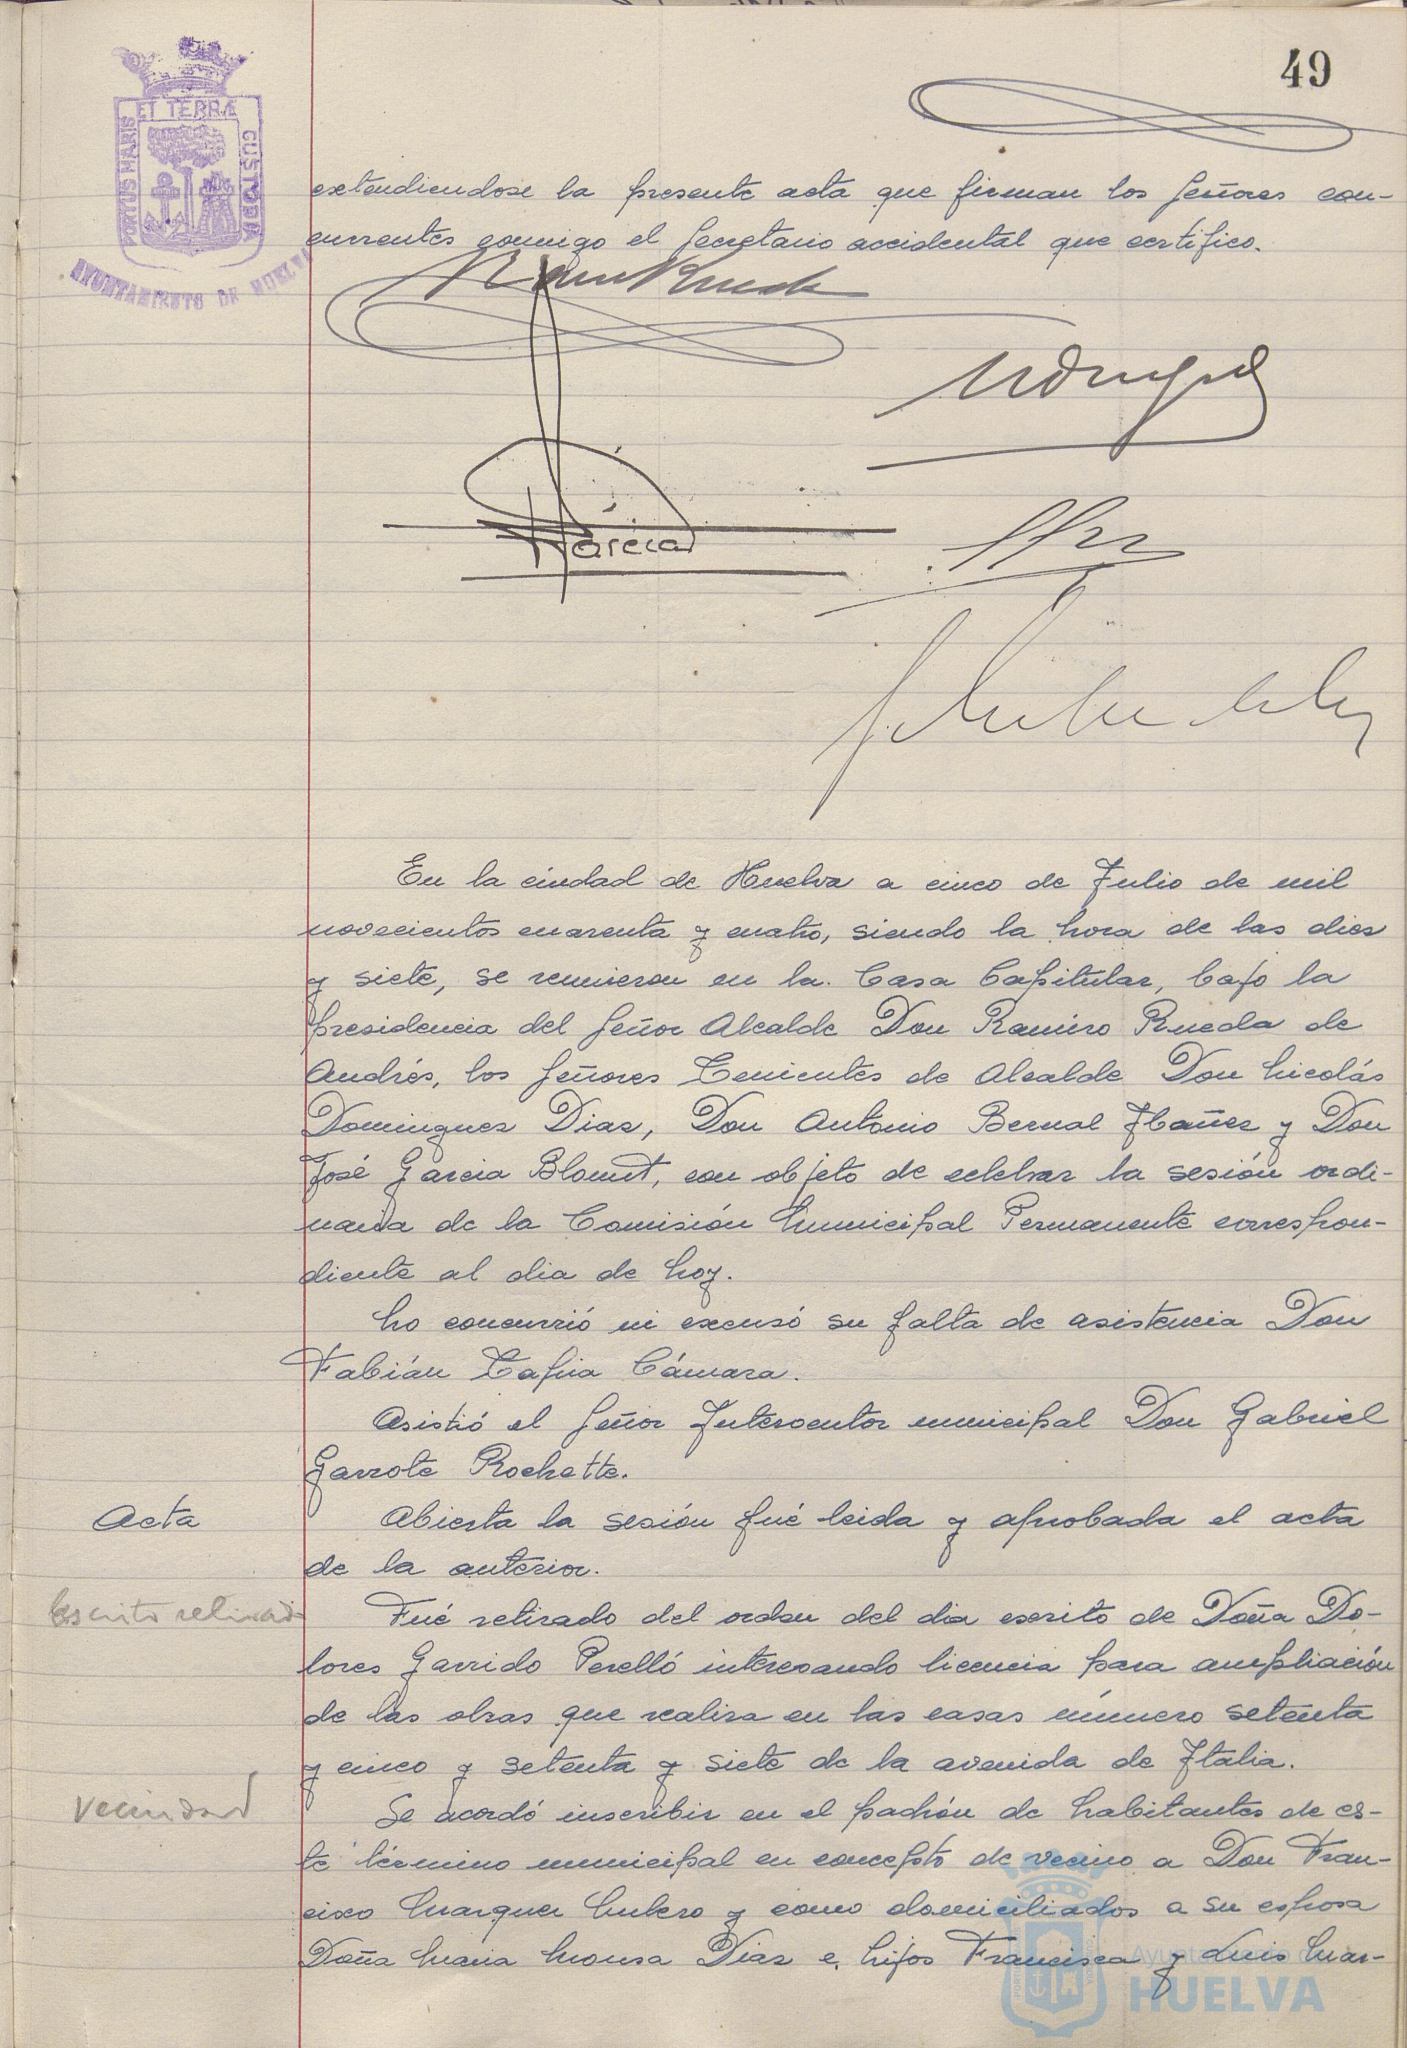 49
ET TERRÆ
PORTUS MARIS
CUSTODIA
AYUNTAMIENTO DE HUELVA
extendiendose la presente acta que firman los Señores con-
currentes conmigo el Secretario accidental que certifico.
García
En la ciudad de Huelva a cinco de Julio de mil
novecientos cuarenta y cuatro, siendo la hora de las diez
y siete, se reunieron en la Casa Capitular, bajo la
presidencia del Señor Alcalde Don Ramiro Rueda de
Andrés, los Señores Tenientes de Alcalde Don Nicolás
Dominguez Diaz, Don Antonio Bernal Ibañez y Don
José Garcia Blomut, con objeto de celebrar la sesión ordi-
naria de la Comisión Municipal Permanente correspon-
diente al dia de hoy.
No concurrió ni excusó su falta de asistencia Don
Fabián Tapia Cámara.
Asistió el Señor Interventor municipal Don Gabriel
Garrote Rochette.
Acta
Abierta la sesión fué leida y aprobada el acta
de la anterior.
Escrito retirado
Fué retirado del orden del dia escrito de Doña Do-
lores Garrido Perelló interesando licencia para ampliación
de las obras que realiza en las casas número setenta
y cinco y setenta y siete de la avenida de Italia.
Vecindad
Se acordó inscribir en el padrón de habitantes de es-
te término municipal en concepto de vecino a Don Fran-
cisco Marquez and y como domiciliados a su esposa
Doña Maria Diaz e hijos Francisca y Luis Mar-
Ayuntamiento de
HUELVA